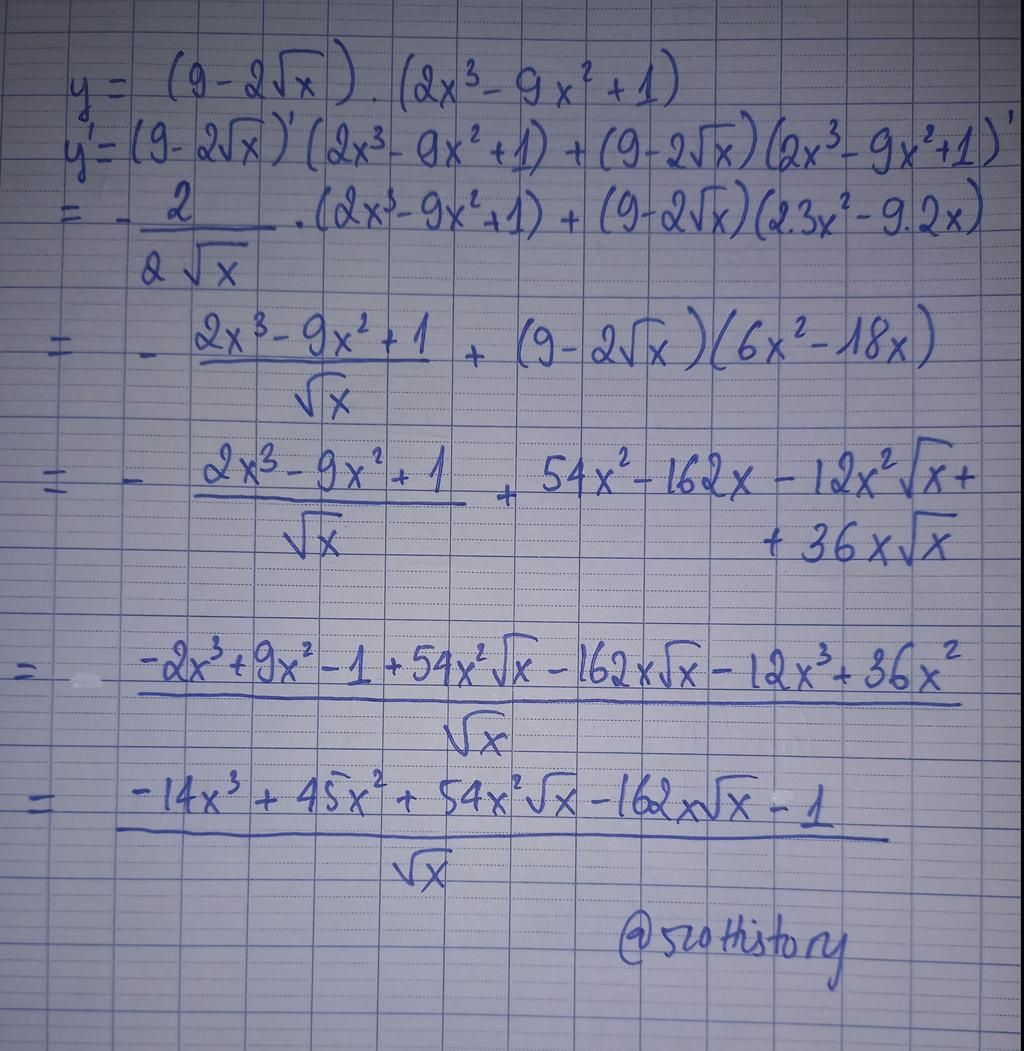 y = (9 - 2√x) . (2x³ - 9x² + 1)
y' = (9 - 2√x)' (2x³ - 9x² + 1) + (9 - 2√x) (2x³ - 9x² + 1)'
= - 2/(2√x) . (2x³ - 9x² + 1) + (9 - 2√x) (2.3x² - 9.2x)
= - (2x³ - 9x² + 1)/√x + (9 - 2√x) (6x² - 18x)
= - (2x³ - 9x² + 1)/√x + 54x² - 162x - 12x²√x +
+ 36x√x
= (-2x³ + 9x² - 1 + 54x²√x - 162x√x - 12x³ + 36x²)/√x
= (-14x³ + 45x² + 54x²√x - 162x√x - 1)/√x